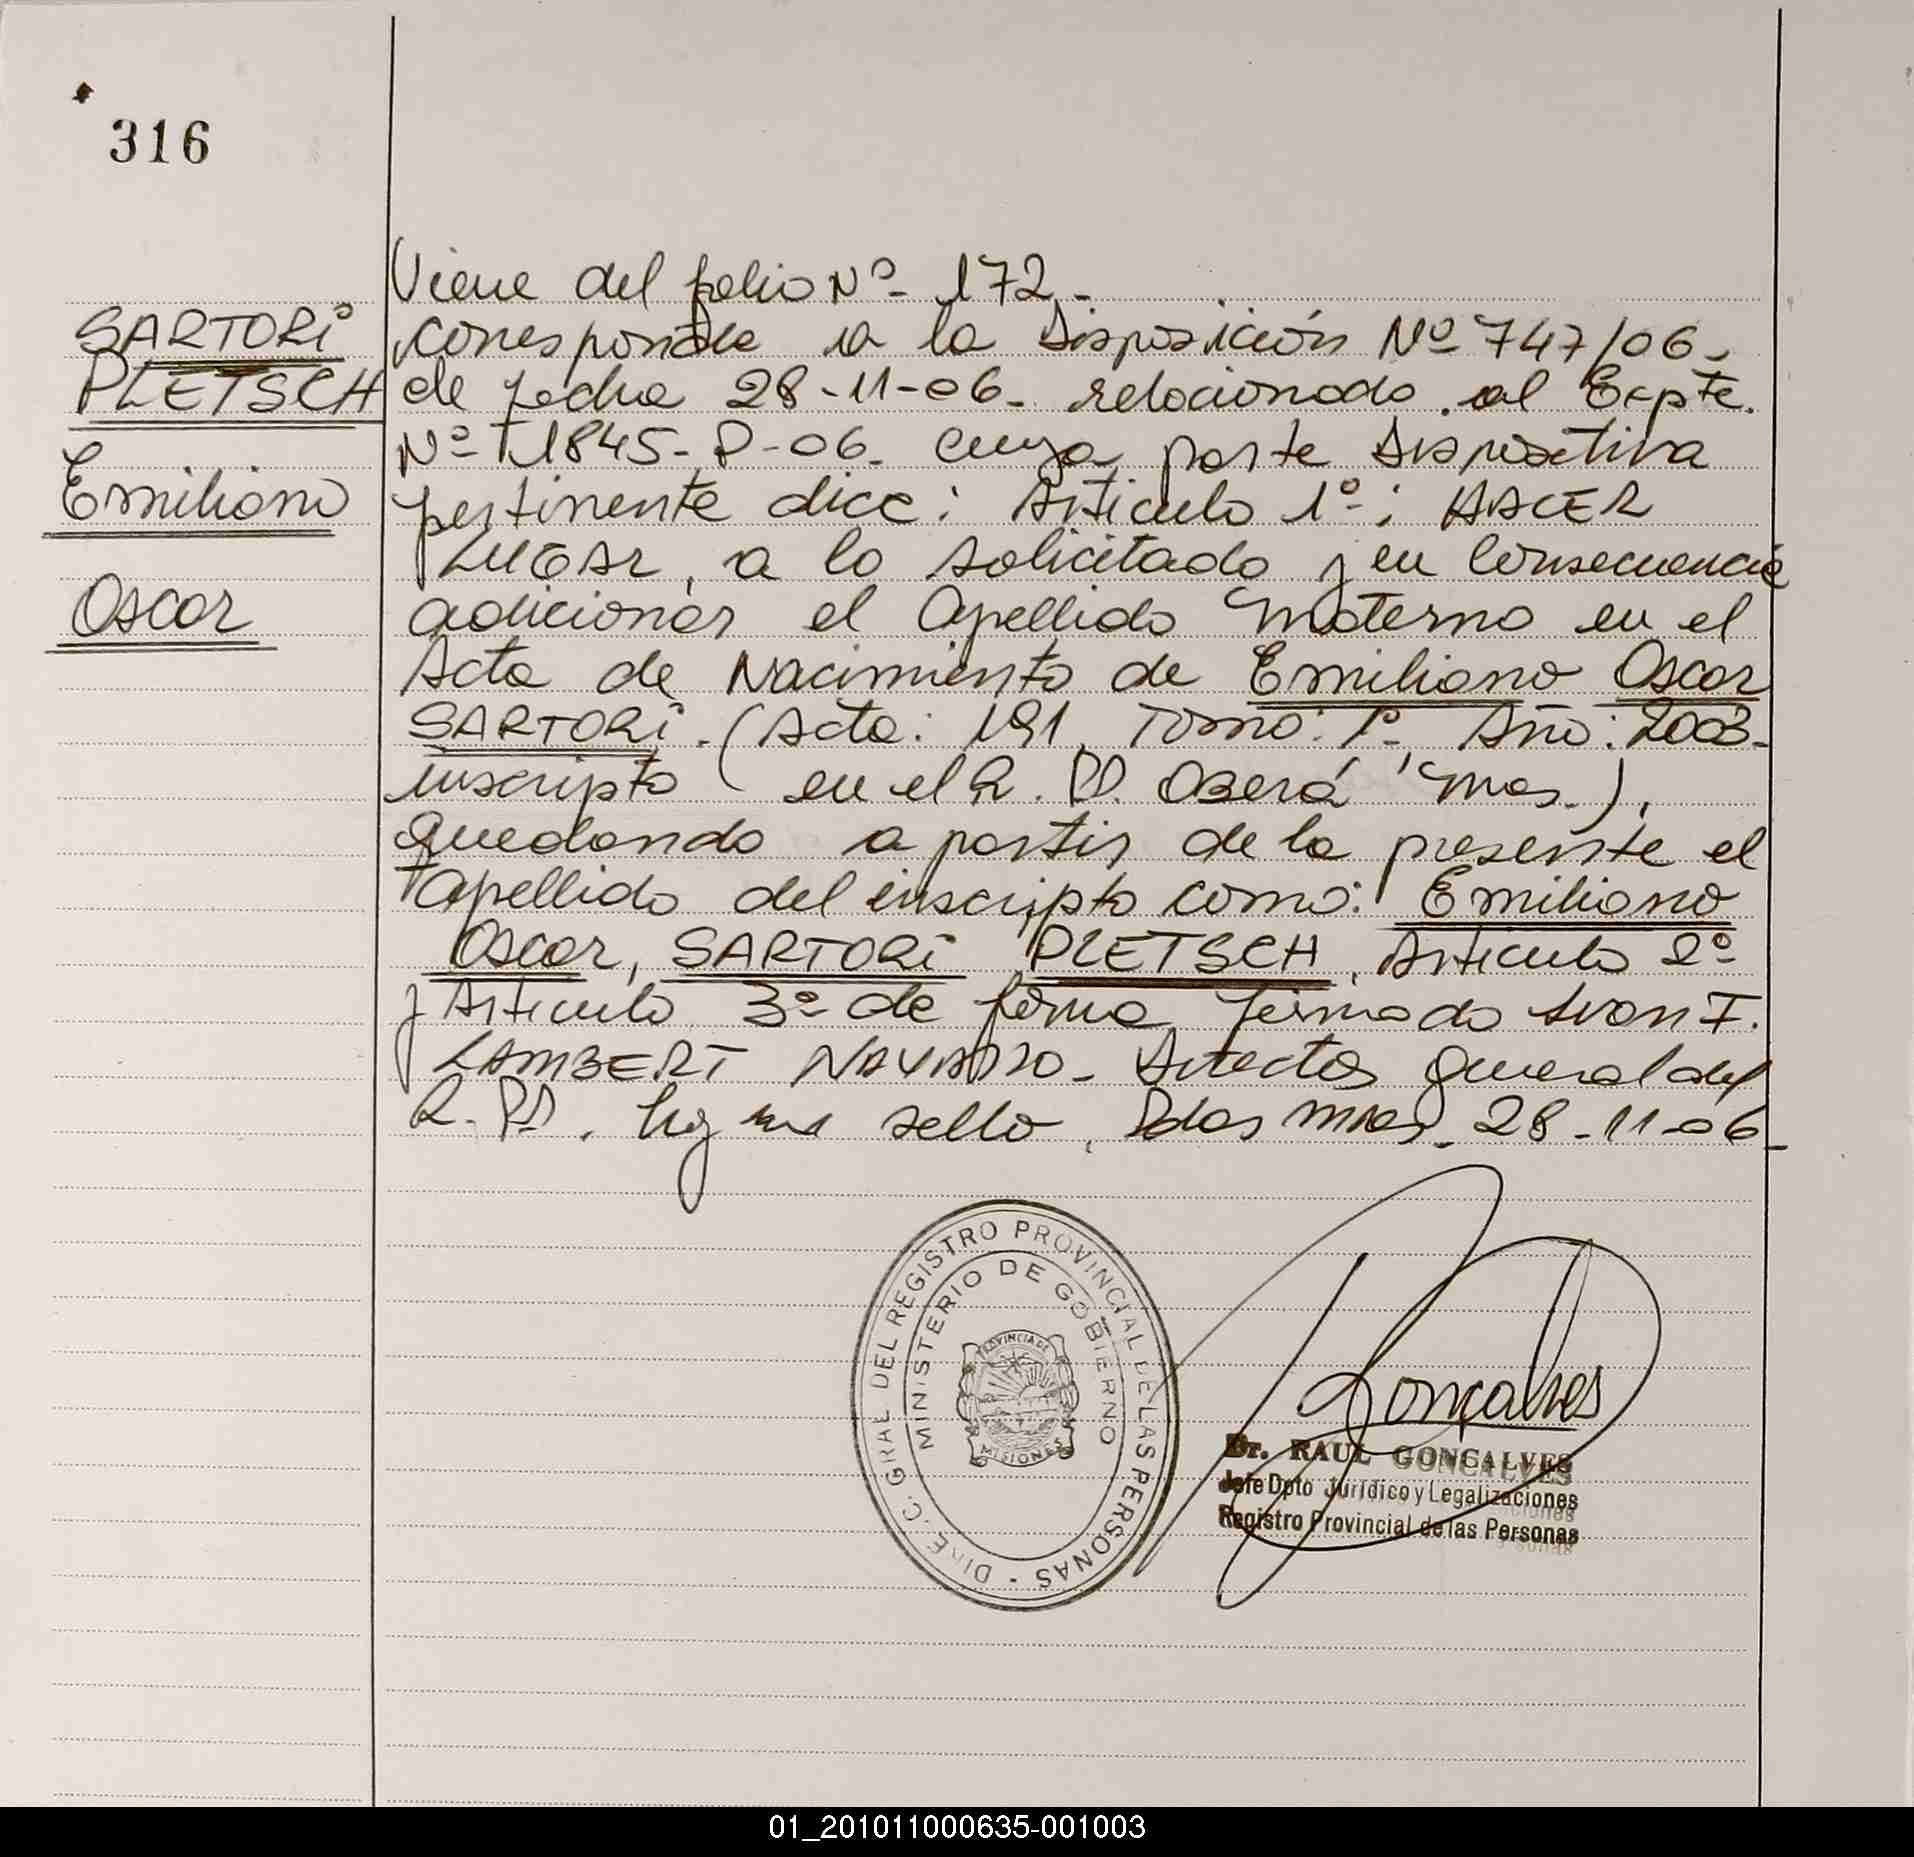 316
SARTORI
PLETSCH
Emiliano
Oscar
Viene del folio Nº 172.-
corresponde a la Disposición Nº 747/06.
de fecha 28-11-06- relacionado al Expte.
Nº 11845-P-06- cuya parte Dispositiva
pertinente dice: Articulo 1º: HACER
LUGAR, a lo solicitado y en consecuencia
adicionar el Apellido Materno en el
Acta de Nacimiento de Emiliano Oscar
SARTORI. (Acta: 191 Tomo: 1º Año: 2003-
inscripto en el R.PP. Oberá Mnes.),
quedando a partir de la presente el
Apellido del inscripto como: Emiliano
Oscar, SARTORI PLETSCH. Articulo 2º
y Articulo 3º de forma firmado Ivan F.
LAMBERT NAVARRO- Director General del
R.PP. hay un sello. Pdas Mnes. 28-11-06-
DIREC. GRAL DEL REGISTRO PROVINCIAL DE LAS PERSONAS -
MINISTERIO DE GOBIERNO
PROVINCIA DE
MISIONES
Gonçalves
Dr. RAUL GONCALVES
Jefe Dpto Jurídico y Legalizaciones
Registro Provincial de las Personas
01_201011000635-001003